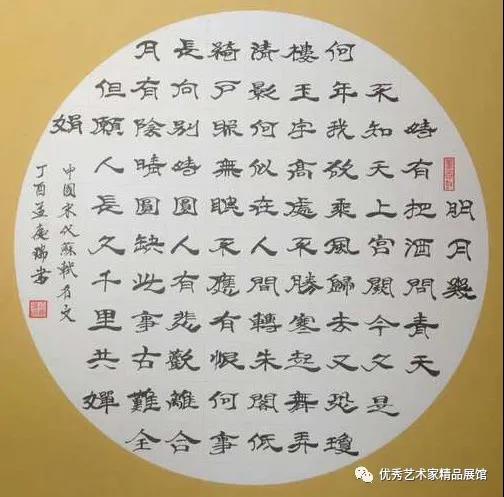 明月幾
時有把酒問青天
不知天上宮闕今夕是
何年我欲乘風歸去又恐瓊
樓玉宇高處不勝寒起舞弄
清影何似在人間轉朱閣低
綺戶照無眠不應有恨何事
長向別時圓人有悲歡離合
月有陰晴圓缺此事古難全
但願人長久千里共嬋
娟
中國宋代蘇軾文
丁酉瑞書
优秀艺术家精品展馆